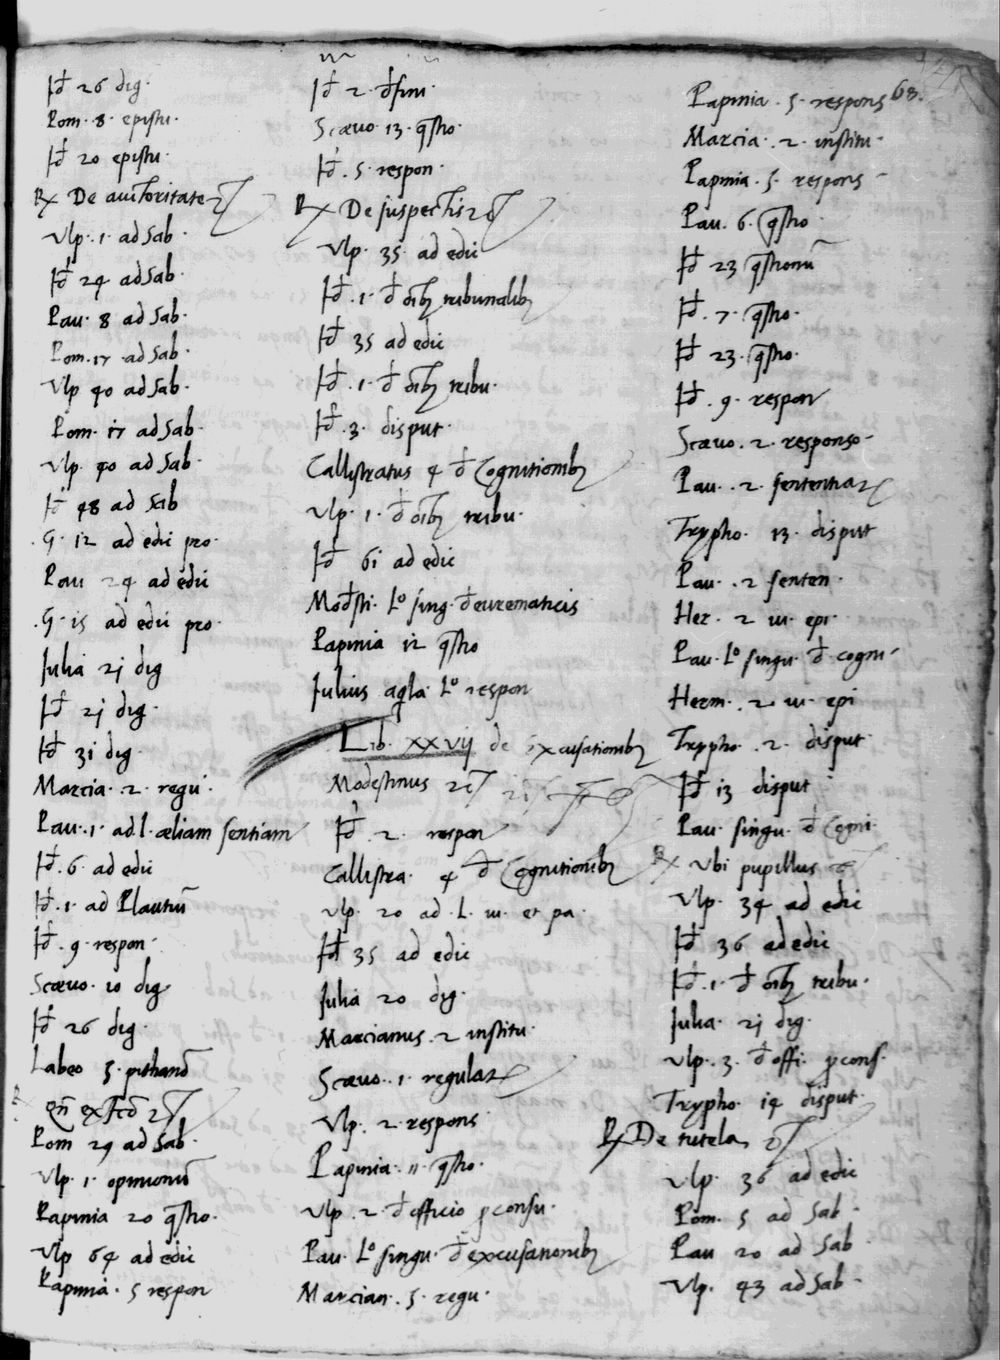 Id 26 dig.
Pom. 8. epistu.
Id 20 epistu.
Rx De auctoritate
Vlp. 1. ad Sab.
Id 24 ad Sab.
Pau. 8 ad Sab.
Pom. 17 ad Sab.
Vlp 40 ad Sab.
Pom. 17 ad Sab.
Vlp. 40 ad Sab.
Id 48 ad Sab
G. 12 ad edic pro.
Pau 24 ad edic
G. 15 ad edic pro.
Julia 21 dig
Id 21 dig.
Id 31 dig.
Marcia. 2. regu.
Pau. 1. ad l. æliam sentiam
Id. 6. ad edic
Id. 1. ad Plautiū
Id. 9. respon.
Scæuo. 10 dig.
Id 26 dig.
Labeo 5. pithanō
Pom 29 ad Sab.
Vlp. 1. opinionū
Papinia 20 q̄stio.
Vlp 64 ad edic
Papinia. 5 respon
Id 2. difini
Scæuo 13. q̄stio.
Id. 5. respon.
Rx De suspectis
Vlp. 35. ad edic
Id. 1. d oīb tribunalib
Id 35 ad edic
Id. 1. d oīb tribu.
Id. 3. disput.
Callistratus 4 d Cognitionib
Vlp. 1. d oīb tribu.
Id 61 ad edic
Modesti. Lo sing. d eurematicis
Papinia 12 q̄stio
Julius agla. Lo respon
Lib. xxvij de excusationib
Modestinus
Id. 2. respon
Callistra. 4 d Cognitionib
Vlp. 20 ad. L. iu. et pa.
Id 35 ad edic
Julia 20 dig.
Marcianus. 2 institu.
Scæuo. 1. regular
Vlp. 2. respons
Papinia. 11 q̄stio.
Vlp. 2. d officio pconsu.
Pau. Lo singu. d excusationib
Marcian. 5. regu.
63.
Papinia. 5. respons
Marcia. 2. institu.
Papinia. 5. respons
Pau. 6. q̄stio
Id 23 q̄stionū
Id. 7. q̄stio.
Id 23. q̄stio.
Id. 9. respon
Scæuo. 2. responso
Pau. 2. sententiar
Trypho. 13. disput
Pau. 2 senten.
Her. 2 iu. epi.
Pau. Lo singu. d cogni
Herm. 2 iu. epi
Trypho. 2. disput.
Id 13 disput
Pau singu. d Cogni.
Rx Vbi pupillus
Vlp. 34 ad edic
Id 36 ad edic
Id. 1. d oīb tribu.
Julia. 21 dig.
Vlp. 3. d offi. pcons.
Trypho. 14 disput.
Rx De tutela
Vlp. 36 ad edic
Pom. 5 ad Sab.
Pau 20 ad Sab
Vlp. 43 ad Sab.